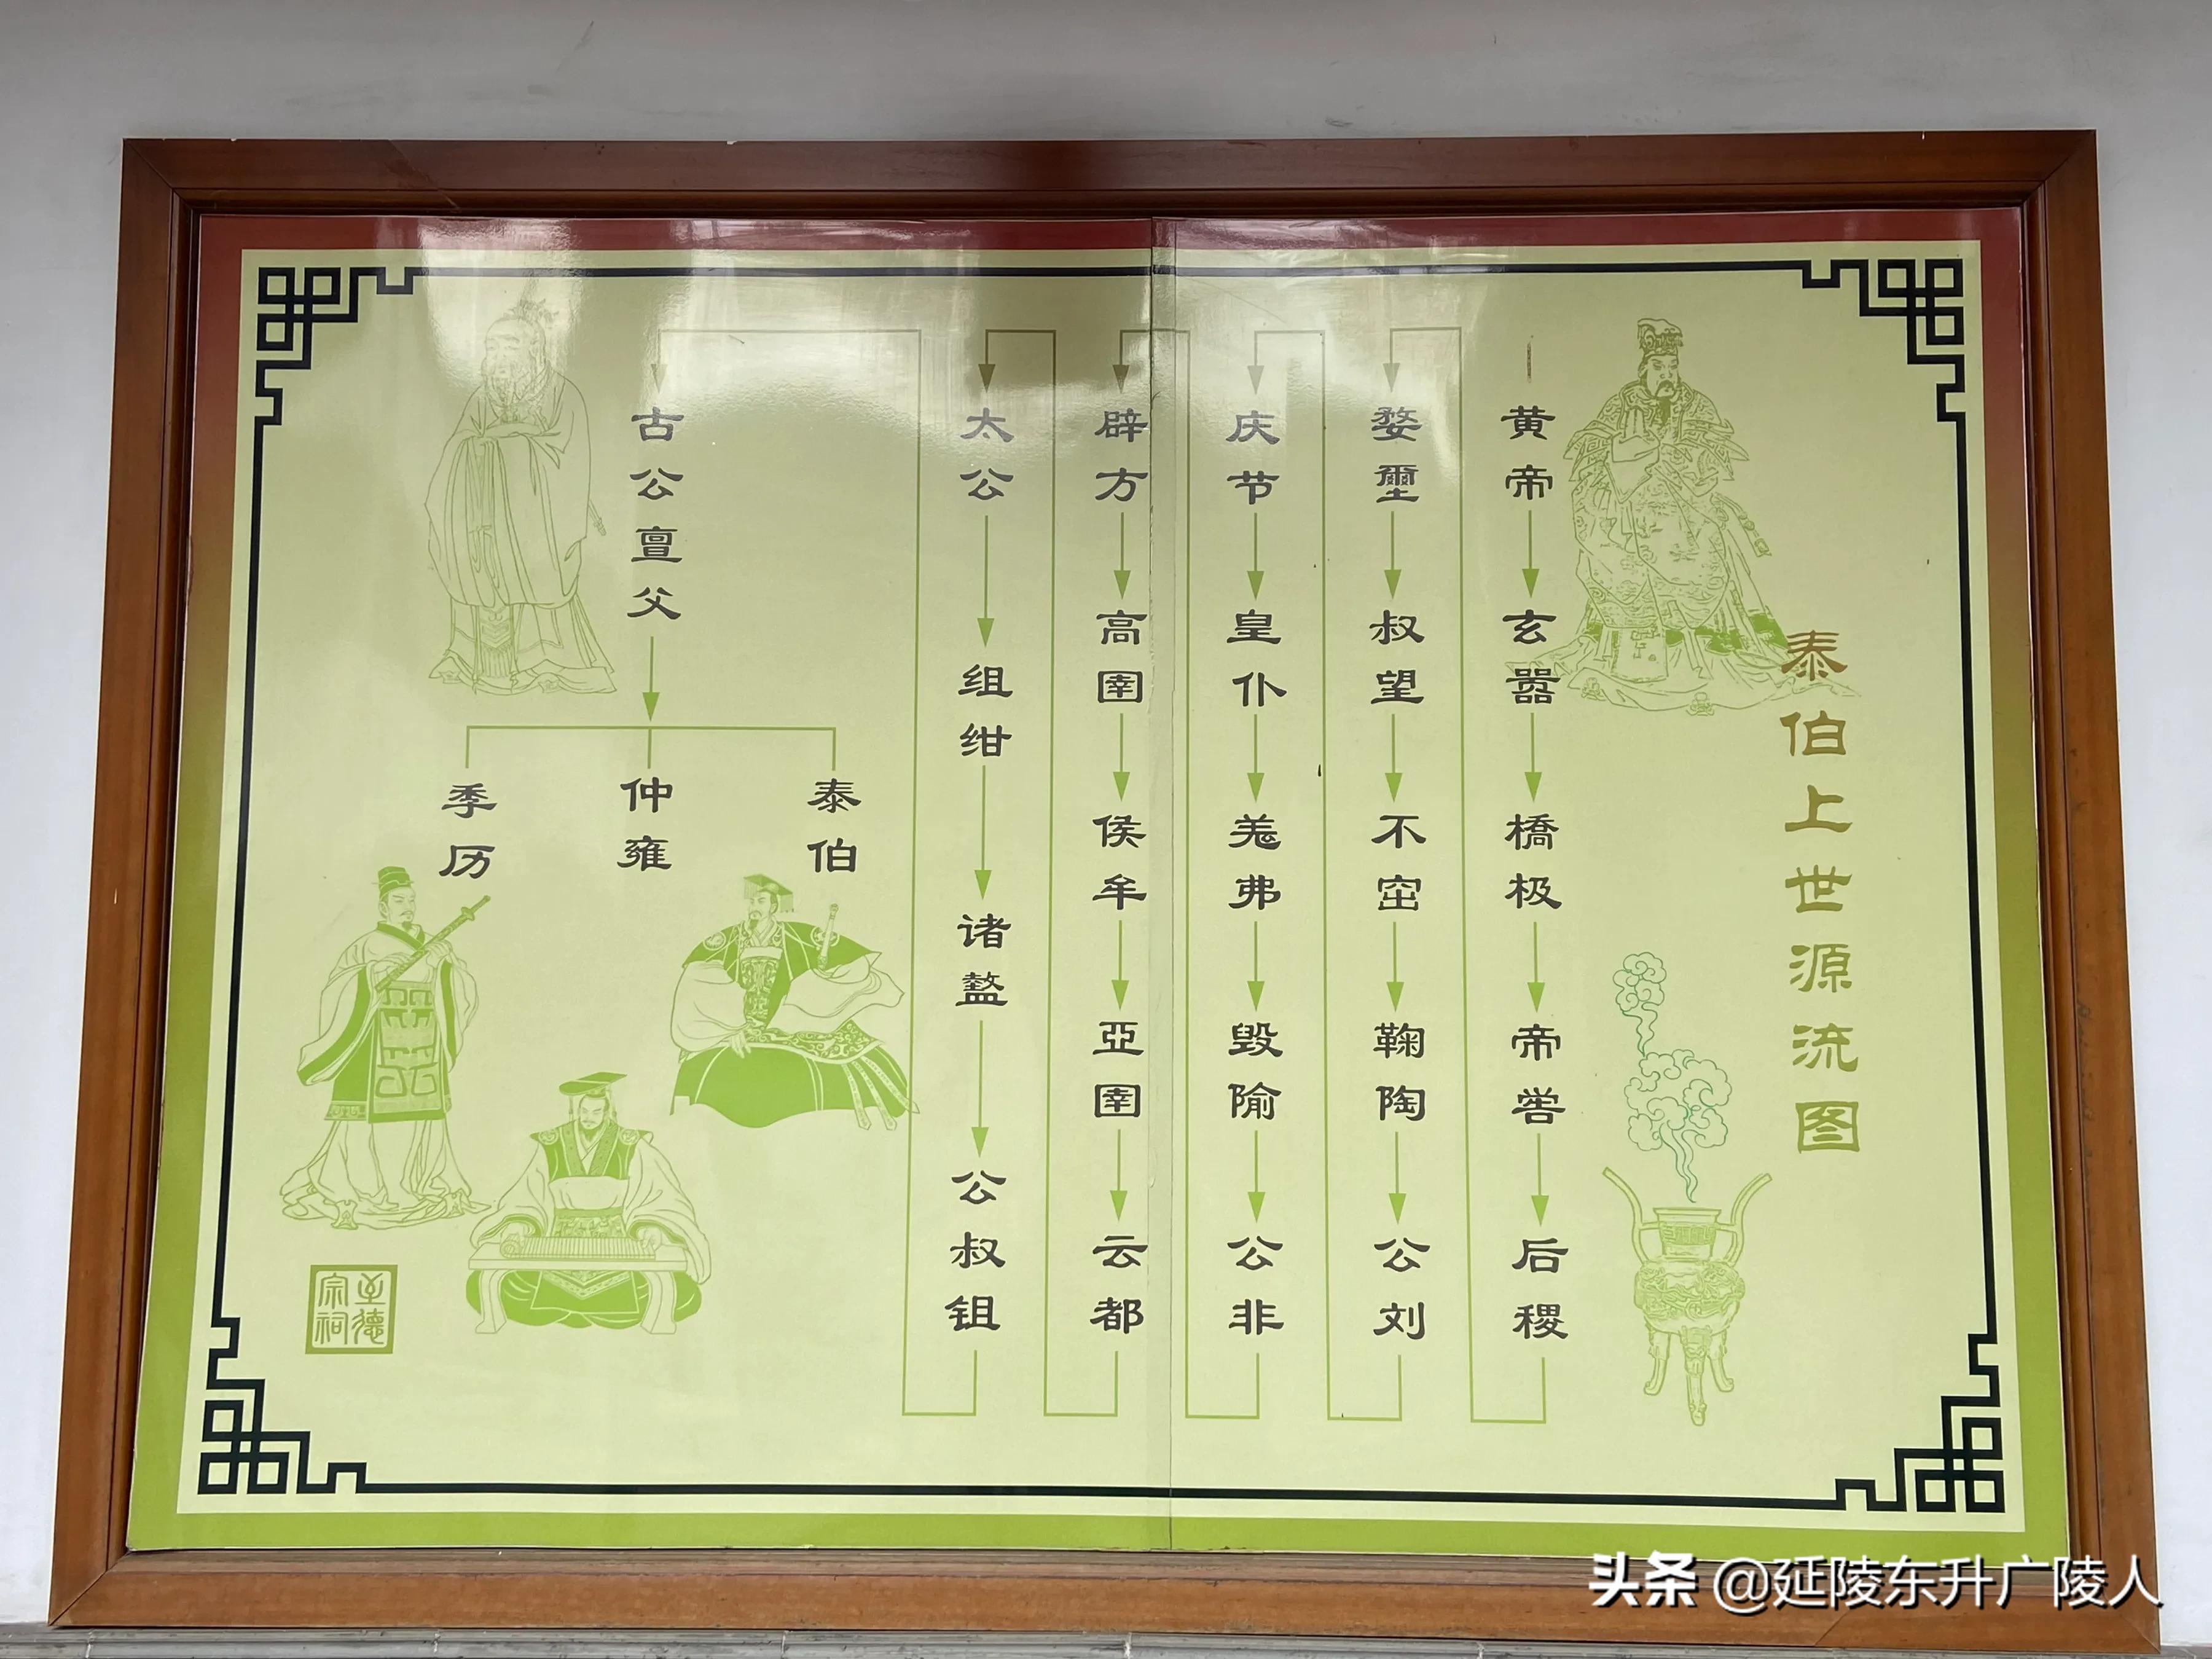 泰伯上世源流图
黄帝
玄嚣
橋极
帝喾
后稷
婺璽
叔望
不窋
鞠陶
公刘
庆节
皇仆
羌弗
毁隃
公非
辟方
高圉
侯牟
亞圉
云都
太公
组绀
诸盩
公叔钼
古公亶父
泰伯
仲雍
季历
至德
宗祠
头条 @延陵东升广陵人